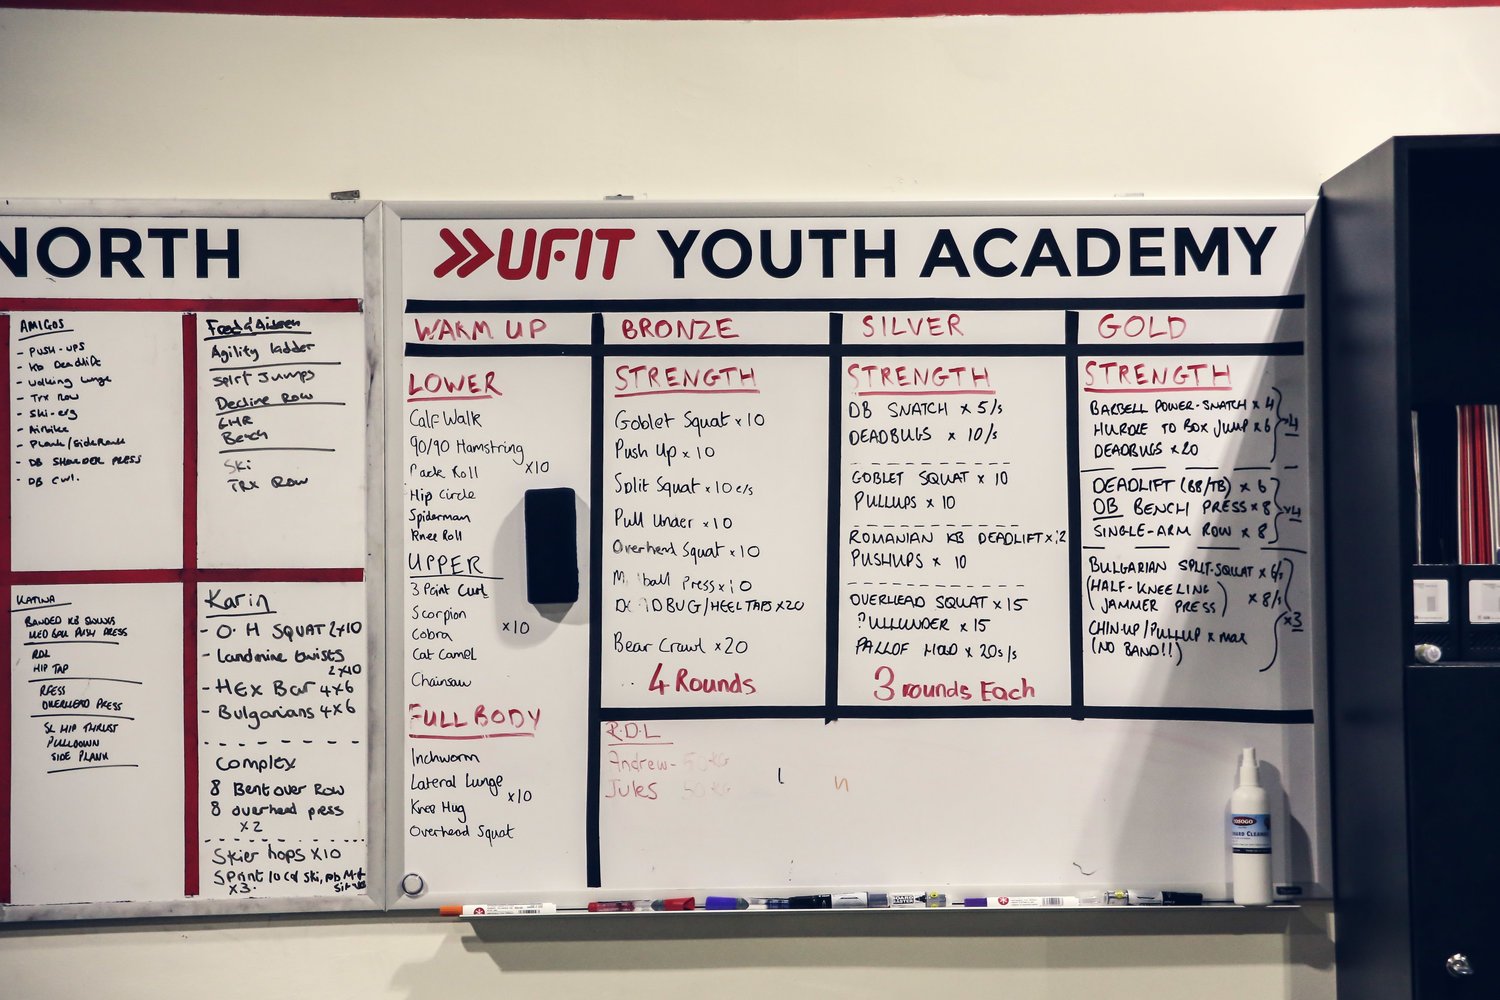 NORTH
AMIGOS
- PUSH-UPS
- KB Deadlift
- Walking lunge
- Trx Row
- Ski-erg
- Airbike
- Plank/Side Plank
- DB SHOULDER PRESS
- DB
Agility ladder
Split Jumps
Decline Row
GHR
Bench
Ski
TRX Row
KATINA
BANDED KB
MED BALL PUSH PRESS
RDL
HIP TAP
PRESS
OVERHEAD PRESS
SL HIP THRUST
PULLDOWN
SIDE PLANK
Karin
- O.H SQUAT 2x10
- Landmine twists
2x10
- HEX Bar 4x6
- Bulgarians 4x6
Complex
8 Bent over Row
8 overhead press
x2
Skier hops x10
Sprint 10 cal ski,
x3.
UFIT YOUTH ACADEMY
WARM UP
LOWER
Calf Walk
90/90 Hamstring
Roll x10
Hip Circle
Spiderman
Knee Roll
UPPER
3 Point Curl
Scorpion
Cobra x10
Cat Camel
Chainsaw
FULL BODY
Inchworm
Lateral Lunge
x10
Knee Hug
Overhead Squat
BRONZE
STRENGTH
Goblet Squat x 10
Push Up x 10
Split Squat x 10 e/s
Pull Under x 10
Overhead Squat x 10
Press x 10
BUG/HEEL TAPS x20
Bear Crawl x20
4 Rounds
SILVER
STRENGTH
DB SNATCH x 5/s
DEADBUGS x 10/s
GOBLET SQUAT x 10
PULLUPS x 10
ROMANIAN KB DEADLIFT x 12
PUSHUPS x 10
OVERHEAD SQUAT x 15
PULLUNDER x 15
PALLOF HOLD x 20s/s
3 rounds Each
GOLD
STRENGTH
BARBELL POWER-SNATCH x 4
HURDLE TO BOX JUMP x 6 x4
DEADBUGS x 20
DEADLIFT (BB/TB) x 6
DB BENCH PRESS x 8 x4
SINGLE-ARM ROW x 8
BULGARIAN SPLIT-SQUAT x 6/s
(HALF-KNEELING
JAMMER PRESS) x 8/s
x3
CHIN-UP/PULLUP x max
(NO BAND!!)
R.D.L
Andrew - 50KG
Jules 50KG